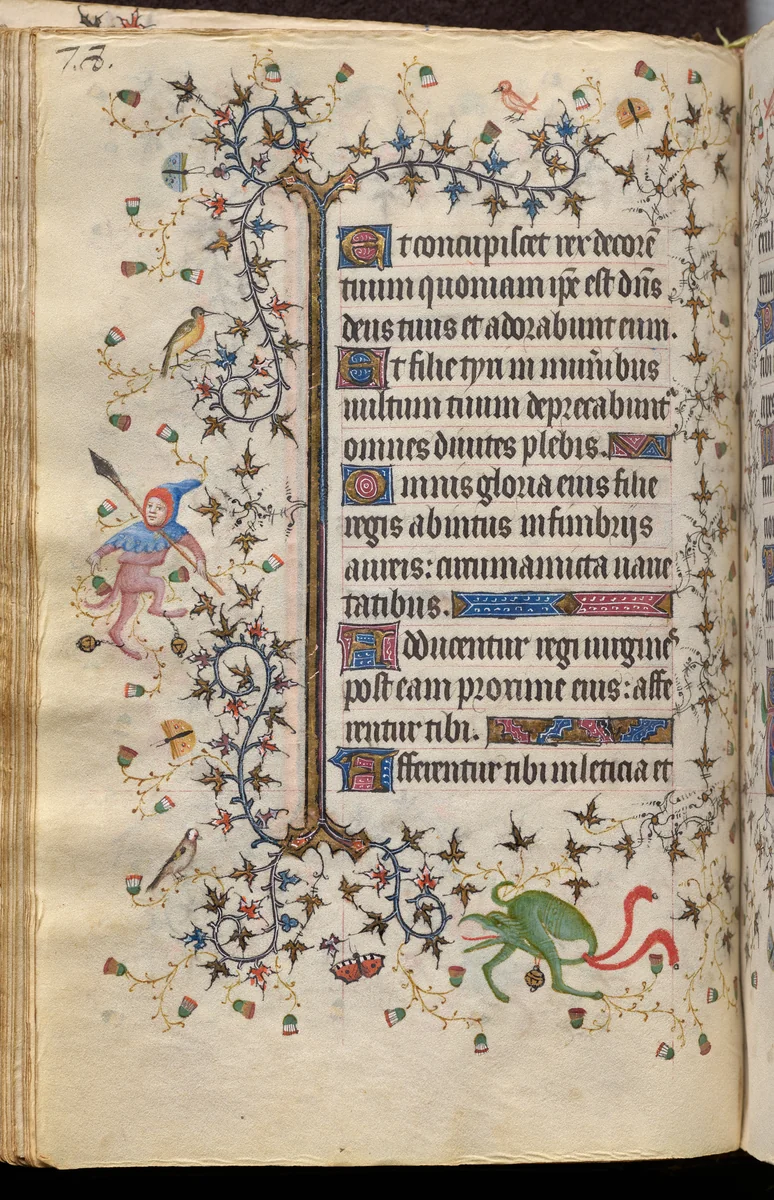 73.
Et concupiscet rex decorē
tuum quoniam ip̄e est dn̄s
deus tuus et adorabunt eum.
Et filie tyri in mun̄ibus
uultum tuum deprecabunt᷑
omnes diuites plebis.
Omnis gloria eius filie
regis abintus in fimbrijs
aureis: circumamicta uarie
tatibus.
Adducentur regi uirgines
post eam proxime eius: affe
rentur tibi.
Afferentur tibi in leticia et